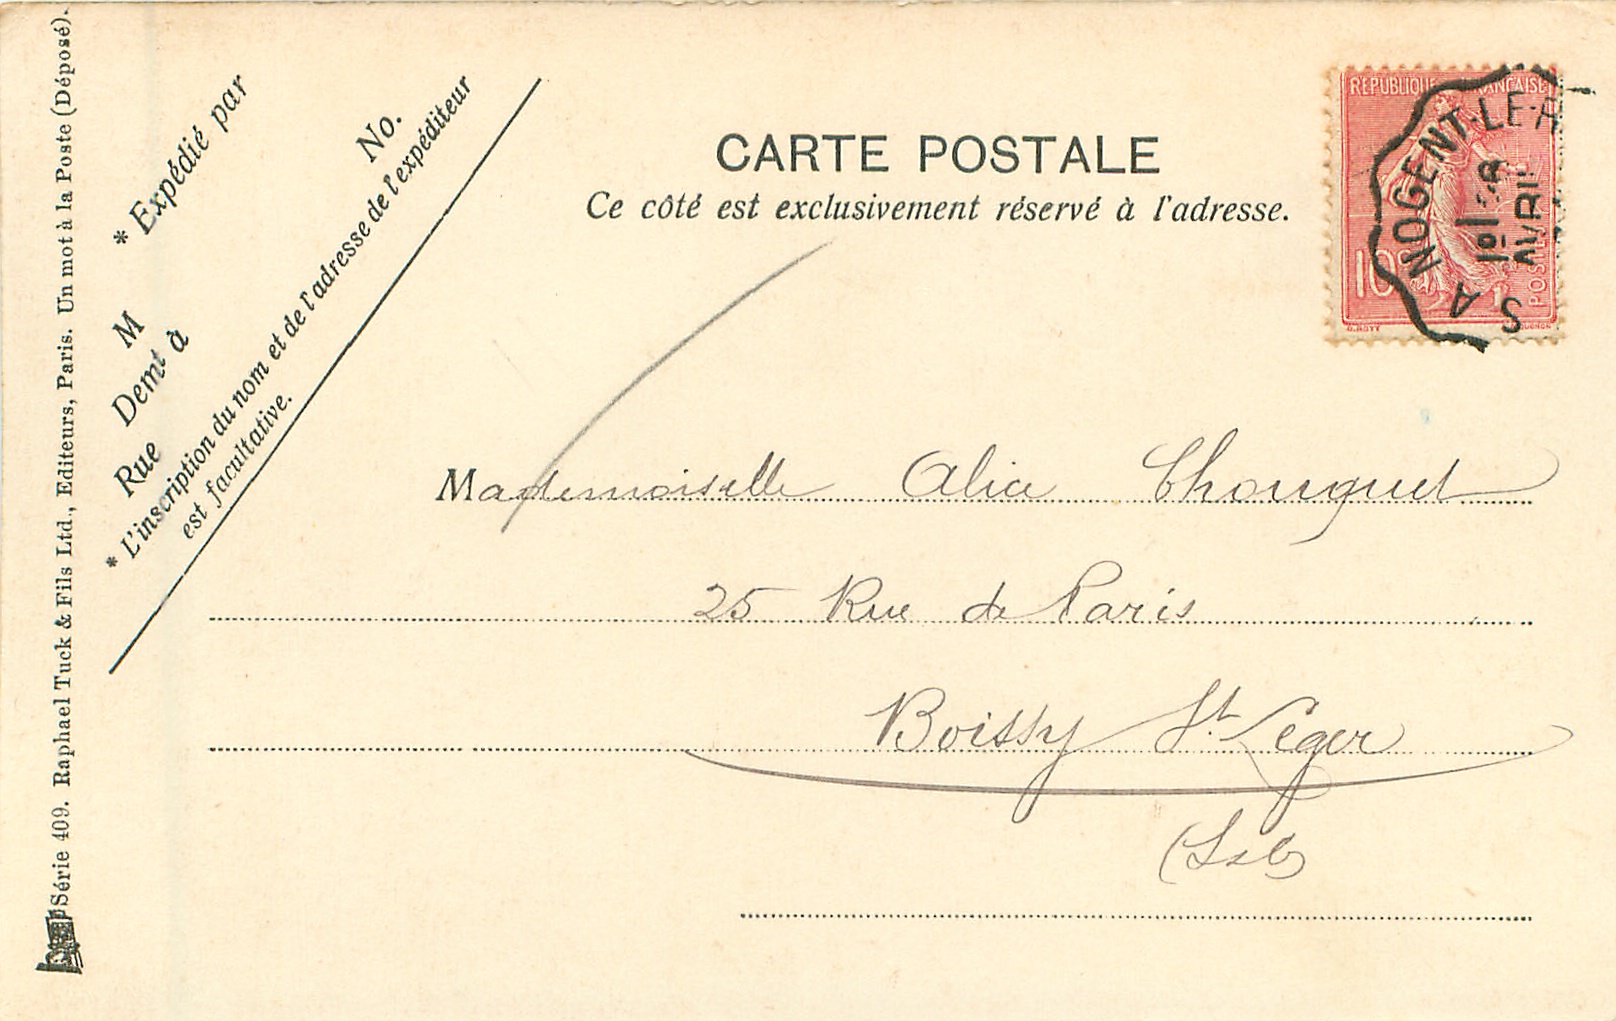 Série 409. Raphael Tuck & Fils Ltd., Editeurs, Paris. Un mot à la Poste (Déposé).
* Expédié par
No.
M
Demt à
Rue
* L'inscription du nom et de l'adresse de l'expéditeur
est facultative.
CARTE POSTALE
Ce côté est exclusivement réservé à l'adresse.
RÉPUBLIQUE FRANÇAISE
10
POSTES
O. ROTY
NOGENT-LE-R
A
S
AVRIL
Mademoiselle Alice Chouquet
25 Rue de Paris
Boissy St. Leger